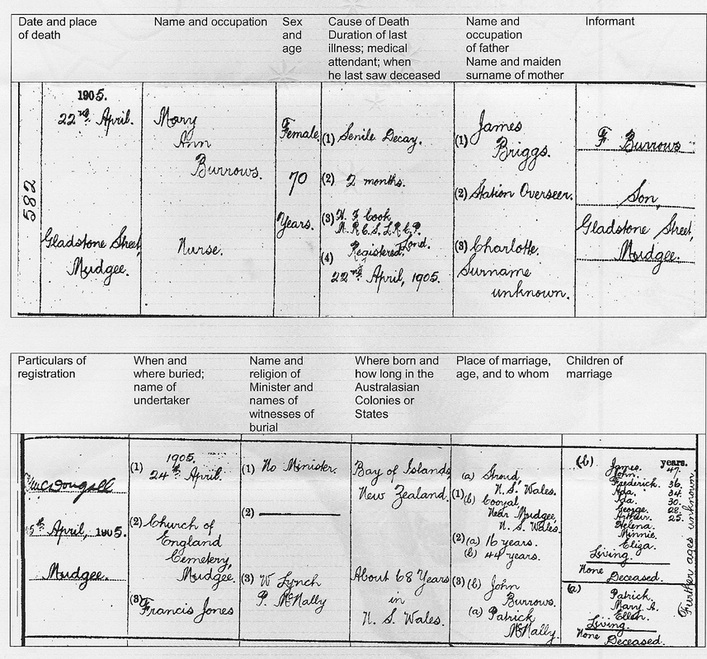 Date and place of death
Name and occupation
Sex and age
Cause of Death Duration of last illness; medical attendant; when he last saw deceased
Name and occupation of father Name and maiden surname of mother
Informant
582
1905.
22nd April.
Gladstone Street,
Mudgee.
Mary
Ann
Burrows.
Nurse.
Female.
70
Years.
(1) Senile Decay.
(2) 2 months.
(3) H. F. Cook
M.R.C.S. L.R.C.P.
Lond.
(4) Registered
22nd April, 1905.
(1) James
Briggs.
(2) Station Overseer.
(3) Charlotte.
Surname
unknown.
F. Burrows
Son,
Gladstone Street,
Mudgee.
Particulars of registration
When and where buried; name of undertaker
Name and religion of Minister and names of witnesses of burial
Where born and how long in the Australasian Colonies or States
Place of marriage, age, and to whom
Children of marriage
McDougall
April, 1905.
Mudgee.
1905.
(1) 24th April.
(2) Church of
England
Cemetery,
Mudgee.
(3) Francis Jones
(1) No Minister.
(2)
(3) W Lynch
P. McNally
Bay of Islands,
New Zealand.
About 68 Years
in
N. S. Wales.
(a) Stroud,
N. S. Wales.
(1) (b) Cooyal
Near Mudgee
N. S. Wales.
2) (a) 16 years.
(b) 44 years.
(3) (b) John
Burrows.
(a) Patrick
McNally.
(b) years.
James 47.
John
Frederick, 36.
Ada. 34.
Ida. 30.
George. 28.
Arthur. 25.
Helena.
Minnie.
Eliza.
Living.
None Deceased.
(a)
Patrick
Mary A.
Ellen.
Living.
None Deceased.
Further ages unknown